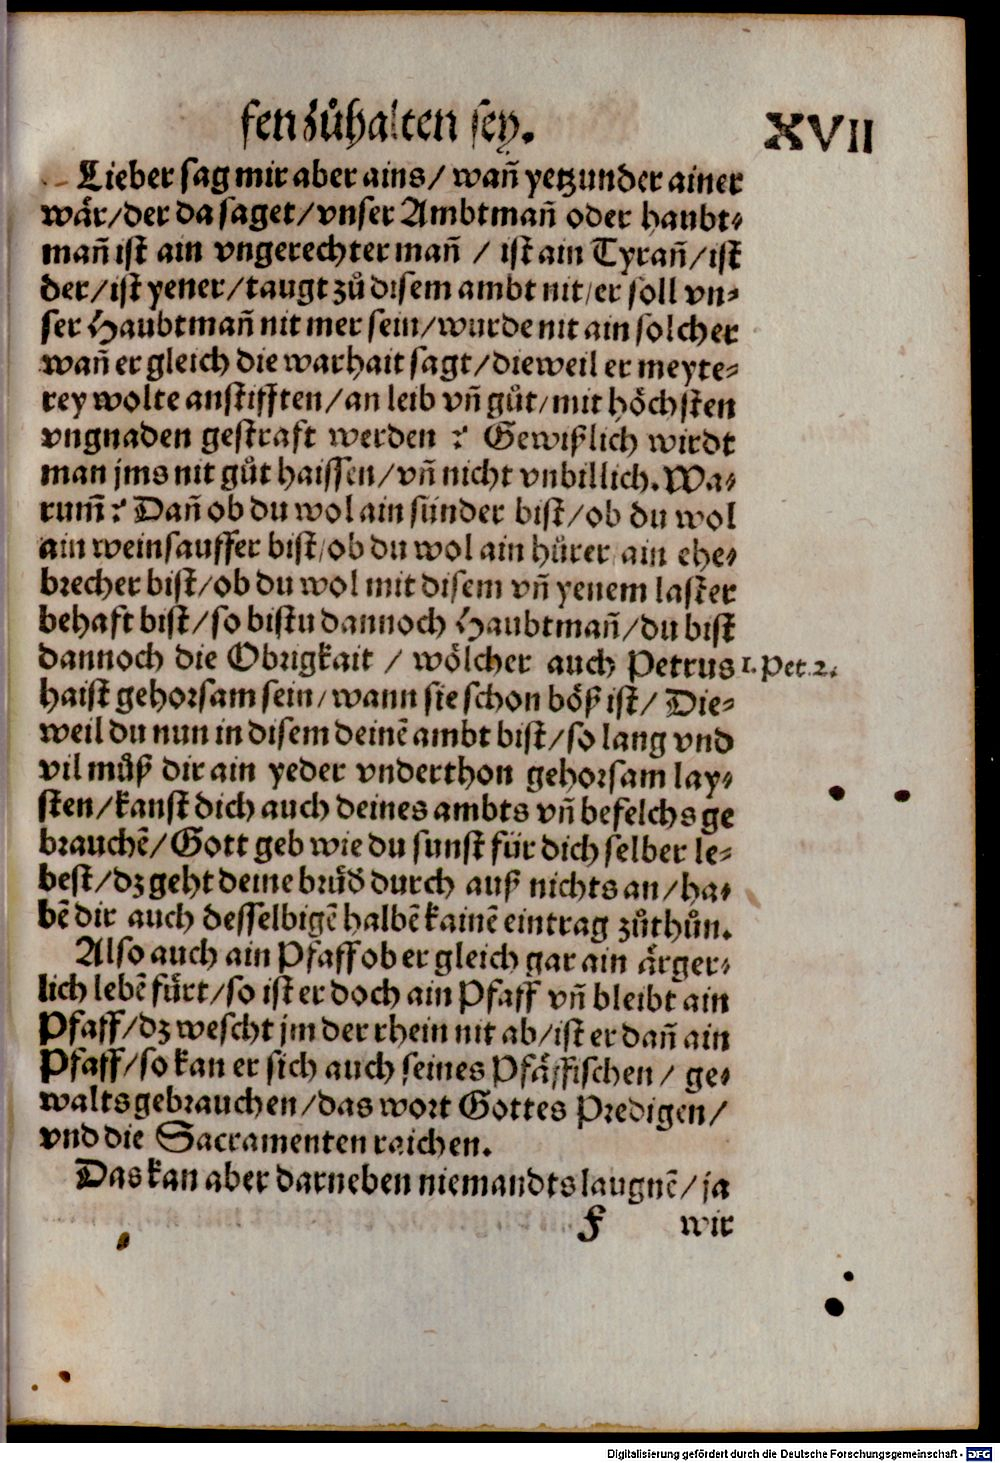 fen zůhalten sey. XVII
Lieber sag mir aber ains / wañ yetzunder ainer
wår/der da saget/vnser Ambtmañ oder haubt⸗
mañ ist ain vngerechter mañ / ist ain Tyrañ/ist
der/ist yener/taugt zů disem ambt nit/er soll vn⸗
ser Haubtmañ nit mer sein/wurde nit ain solcher
wañ er gleich die warhait sagt/dieweil er meyte⸗
rey wolte anstifften/an leib vñ gůt/mit höchsten
vngnaden gestraft werden ? Gewißlich wirdt
man jms nit gůt haissen/vñ nicht vnbillich. Wa⸗
rum̃ ? Dañ ob du wol ain sünder bist/ob du wol
ain weinsauffer bist/ob du wol ain hůrer/ain ehe⸗
brecher bist/ob du wol mit disem vñ yenem laster
behaft bist/so bistu dannoch Haubtmañ/du bist
dannoch die Obrigkait / wölcher auch Petrus 1. Pet. 2.
haist gehorsam sein/wann sie schon böß ist/ Die⸗
weil du nun in disem deinẽ ambt bist/so lang vnd
vil můß dir ain yeder vnderthon gehorsam lay⸗
sten/kanst dich auch deines ambts vñ befelchs ge
brauchẽ/Gott geb wie du sunst für dich selber le⸗
best/dz geht deine brůd durch auß nichts an/ha⸗
bẽ dir auch desselbigẽ halbẽ kainẽ eintrag zůthůn.
Also auch ain Pfaff ob er gleich gar ain årger⸗
lich lebẽ fürt/so ist er doch ain Pfaff vñ bleibt ain
Pfaff/dz wescht jm der rhein nit ab/ist er dañ ain
Pfaff/so kan er sich auch seines Pfåffischen / ge⸗
walts gebrauchen/das wort Gottes Predigen/
vnd die Sacramenten raichen.
Das kan aber darneben niemandts laugnẽ/ja
F wir
Digitalisierung gefördert durch die Deutsche Forschungsgemeinschaft - DFG